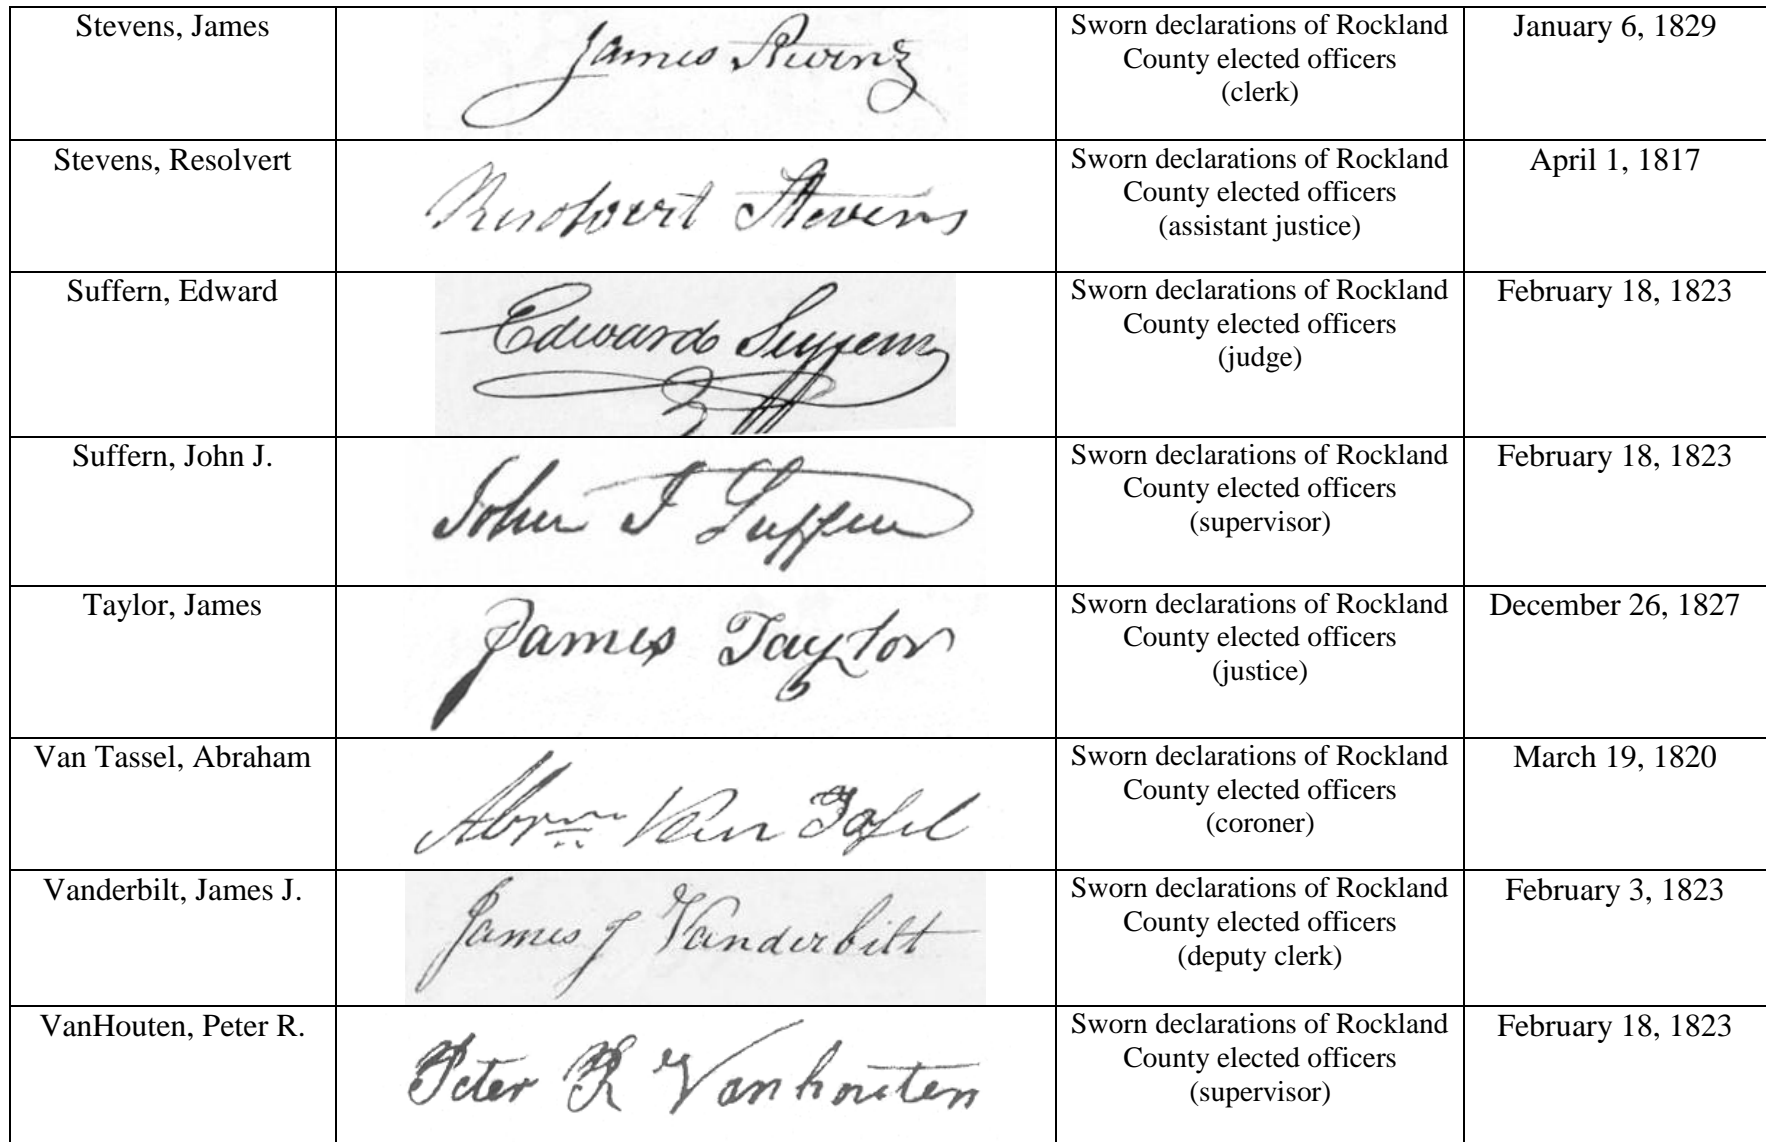 Stevens, James
James Stevens
Sworn declarations of Rockland
County elected officers
(clerk)
January 6, 1829
Stevens, Resolvert
Resolvert Stevens
Sworn declarations of Rockland
County elected officers
(assistant justice)
April 1, 1817
Suffern, Edward
Edward Suffern
Sworn declarations of Rockland
County elected officers
(judge)
February 18, 1823
Suffern, John J.
John J Suffern
Sworn declarations of Rockland
County elected officers
(supervisor)
February 18, 1823
Taylor, James
James Taylor
Sworn declarations of Rockland
County elected officers
(justice)
December 26, 1827
Van Tassel, Abraham
Abrm Van Tassel
Sworn declarations of Rockland
County elected officers
(coroner)
March 19, 1820
Vanderbilt, James J.
James J Vanderbilt
Sworn declarations of Rockland
County elected officers
(deputy clerk)
February 3, 1823
VanHouten, Peter R.
Peter R Vanhouten
Sworn declarations of Rockland
County elected officers
(supervisor)
February 18, 1823